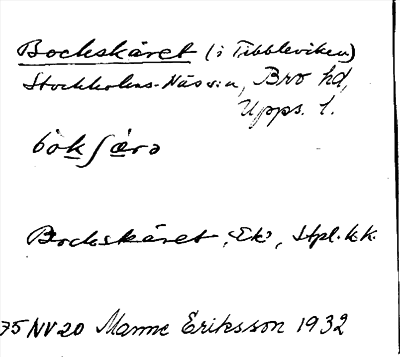 Bockskäret (i Tibbleviken)
Stockholms-Näs sn, Bro hd,
Upps. l.
bòkʃæ̀rə
Bockskäret, Ek³, Stpl. k.k.
75 NV 20 Manne Eriksson 1932